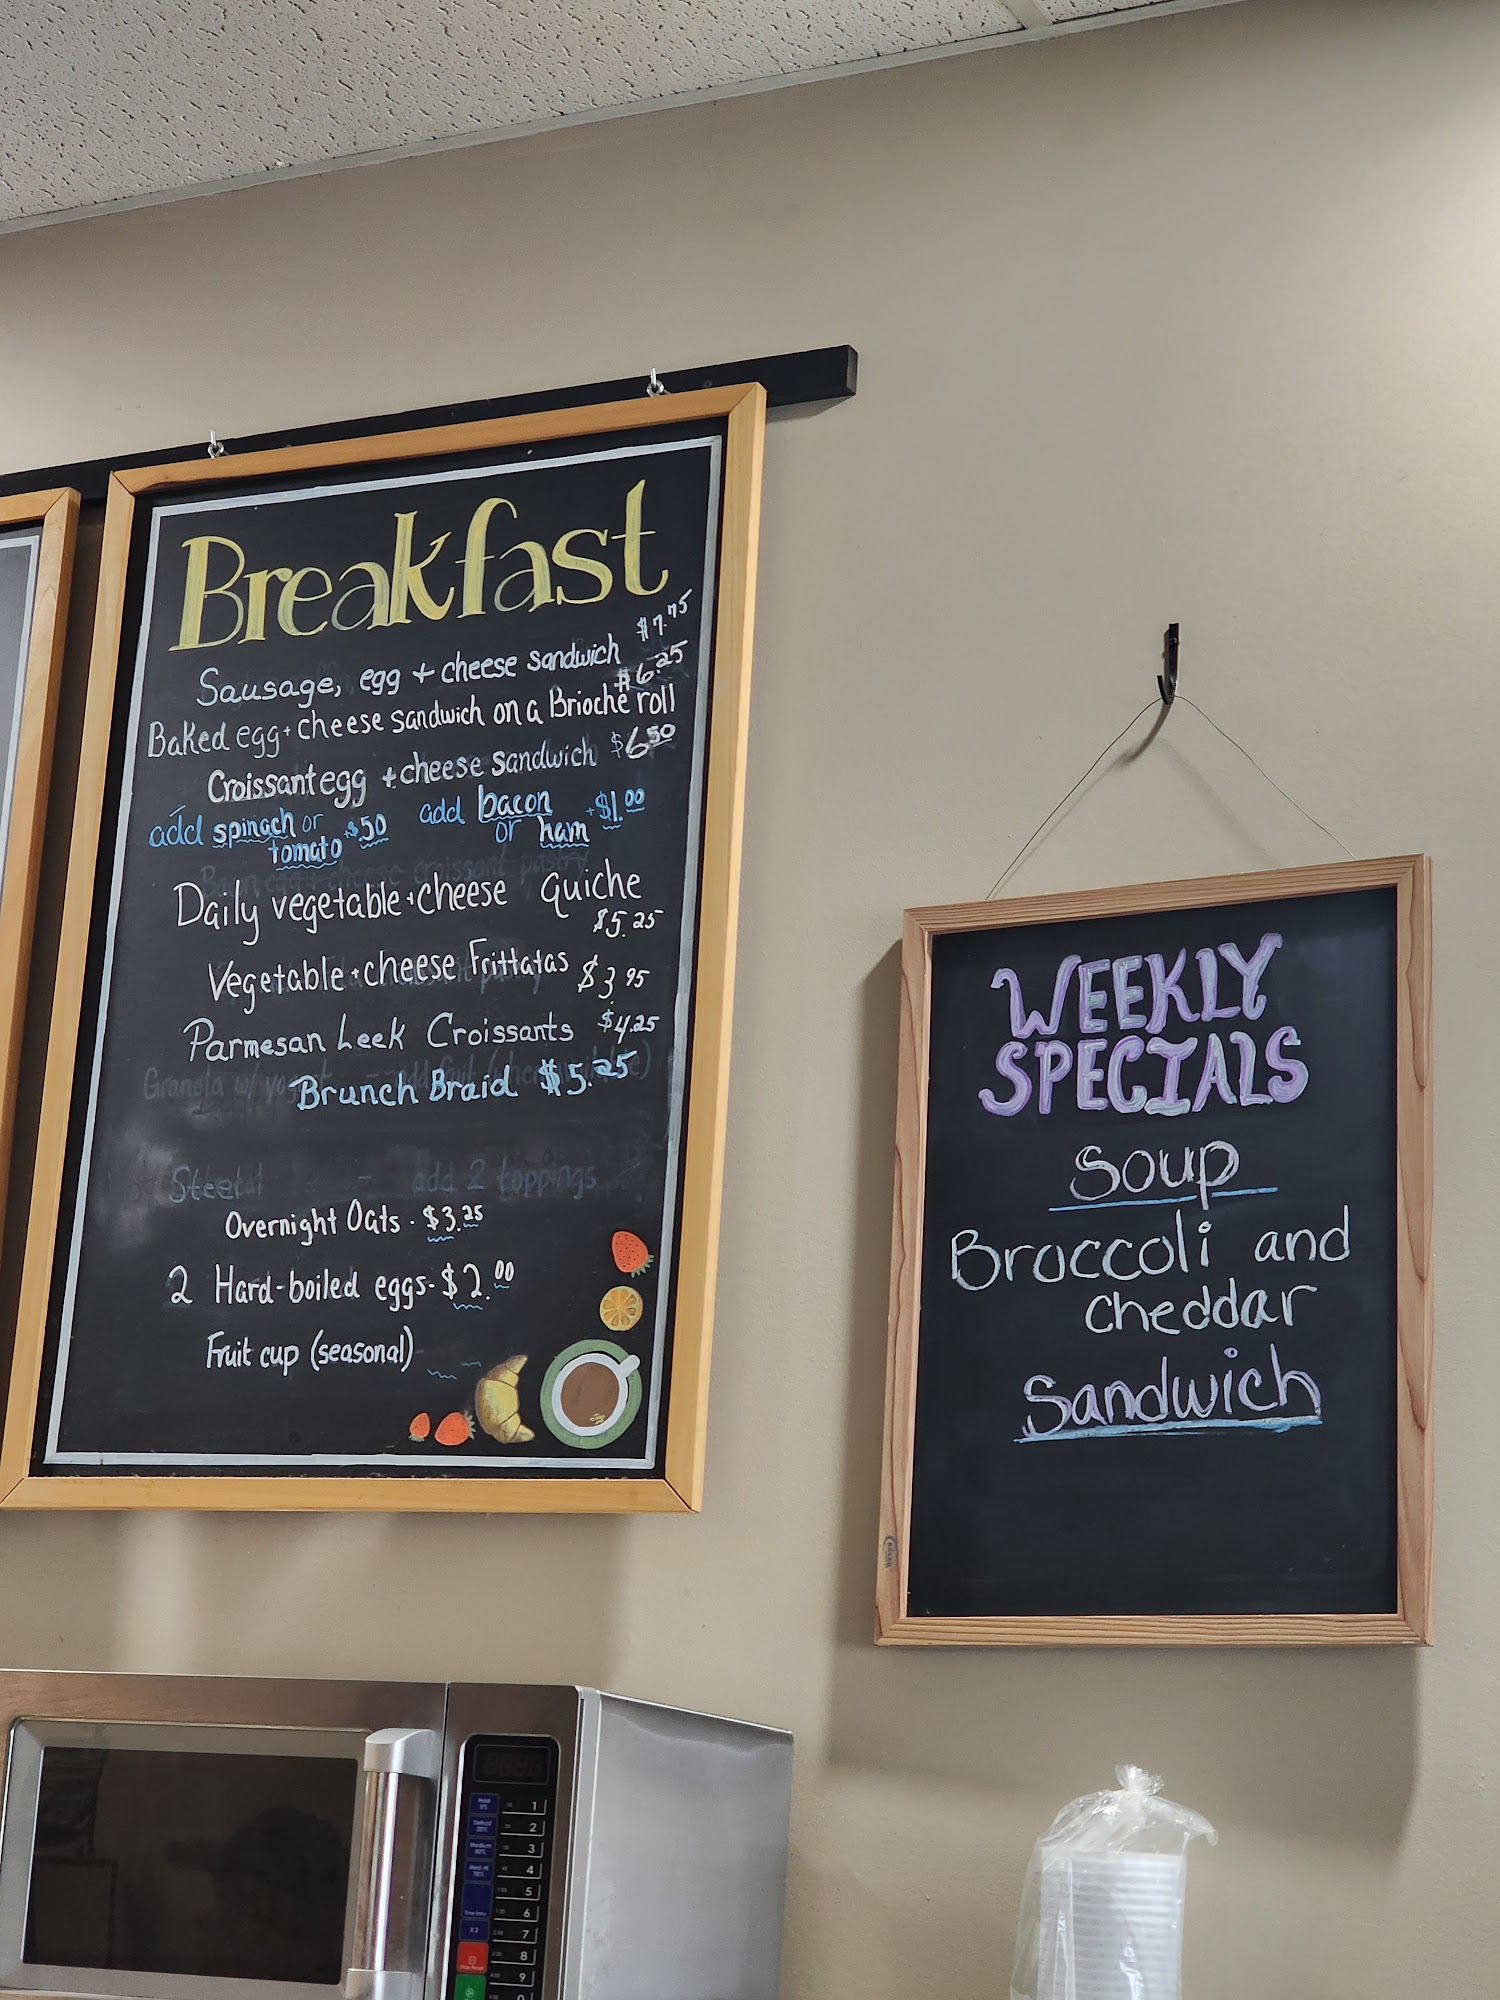 Breakfast
Sausage, egg + cheese sandwich $7.75
$6.25
Baked egg + cheese sandwich on a Brioche roll
Croissant egg + cheese sandwich $6.50
add spinach or tomato +$.50
add bacon or ham +$1.00
Daily vegetable + cheese Quiche
$5.25
Vegetable + cheese Frittatas $3.95
Parmesan Leek Croissants $4.25
Granola w/
Brunch Braid $5.25
- add 2 toppings
Overnight Oats - $3.25
2 Hard-boiled eggs - $2.00
Fruit cup (seasonal)
WEEKLY
SPECIALS
Soup
Broccoli and
cheddar
Sandwich
1
2
3
4
5
6
7
8
9